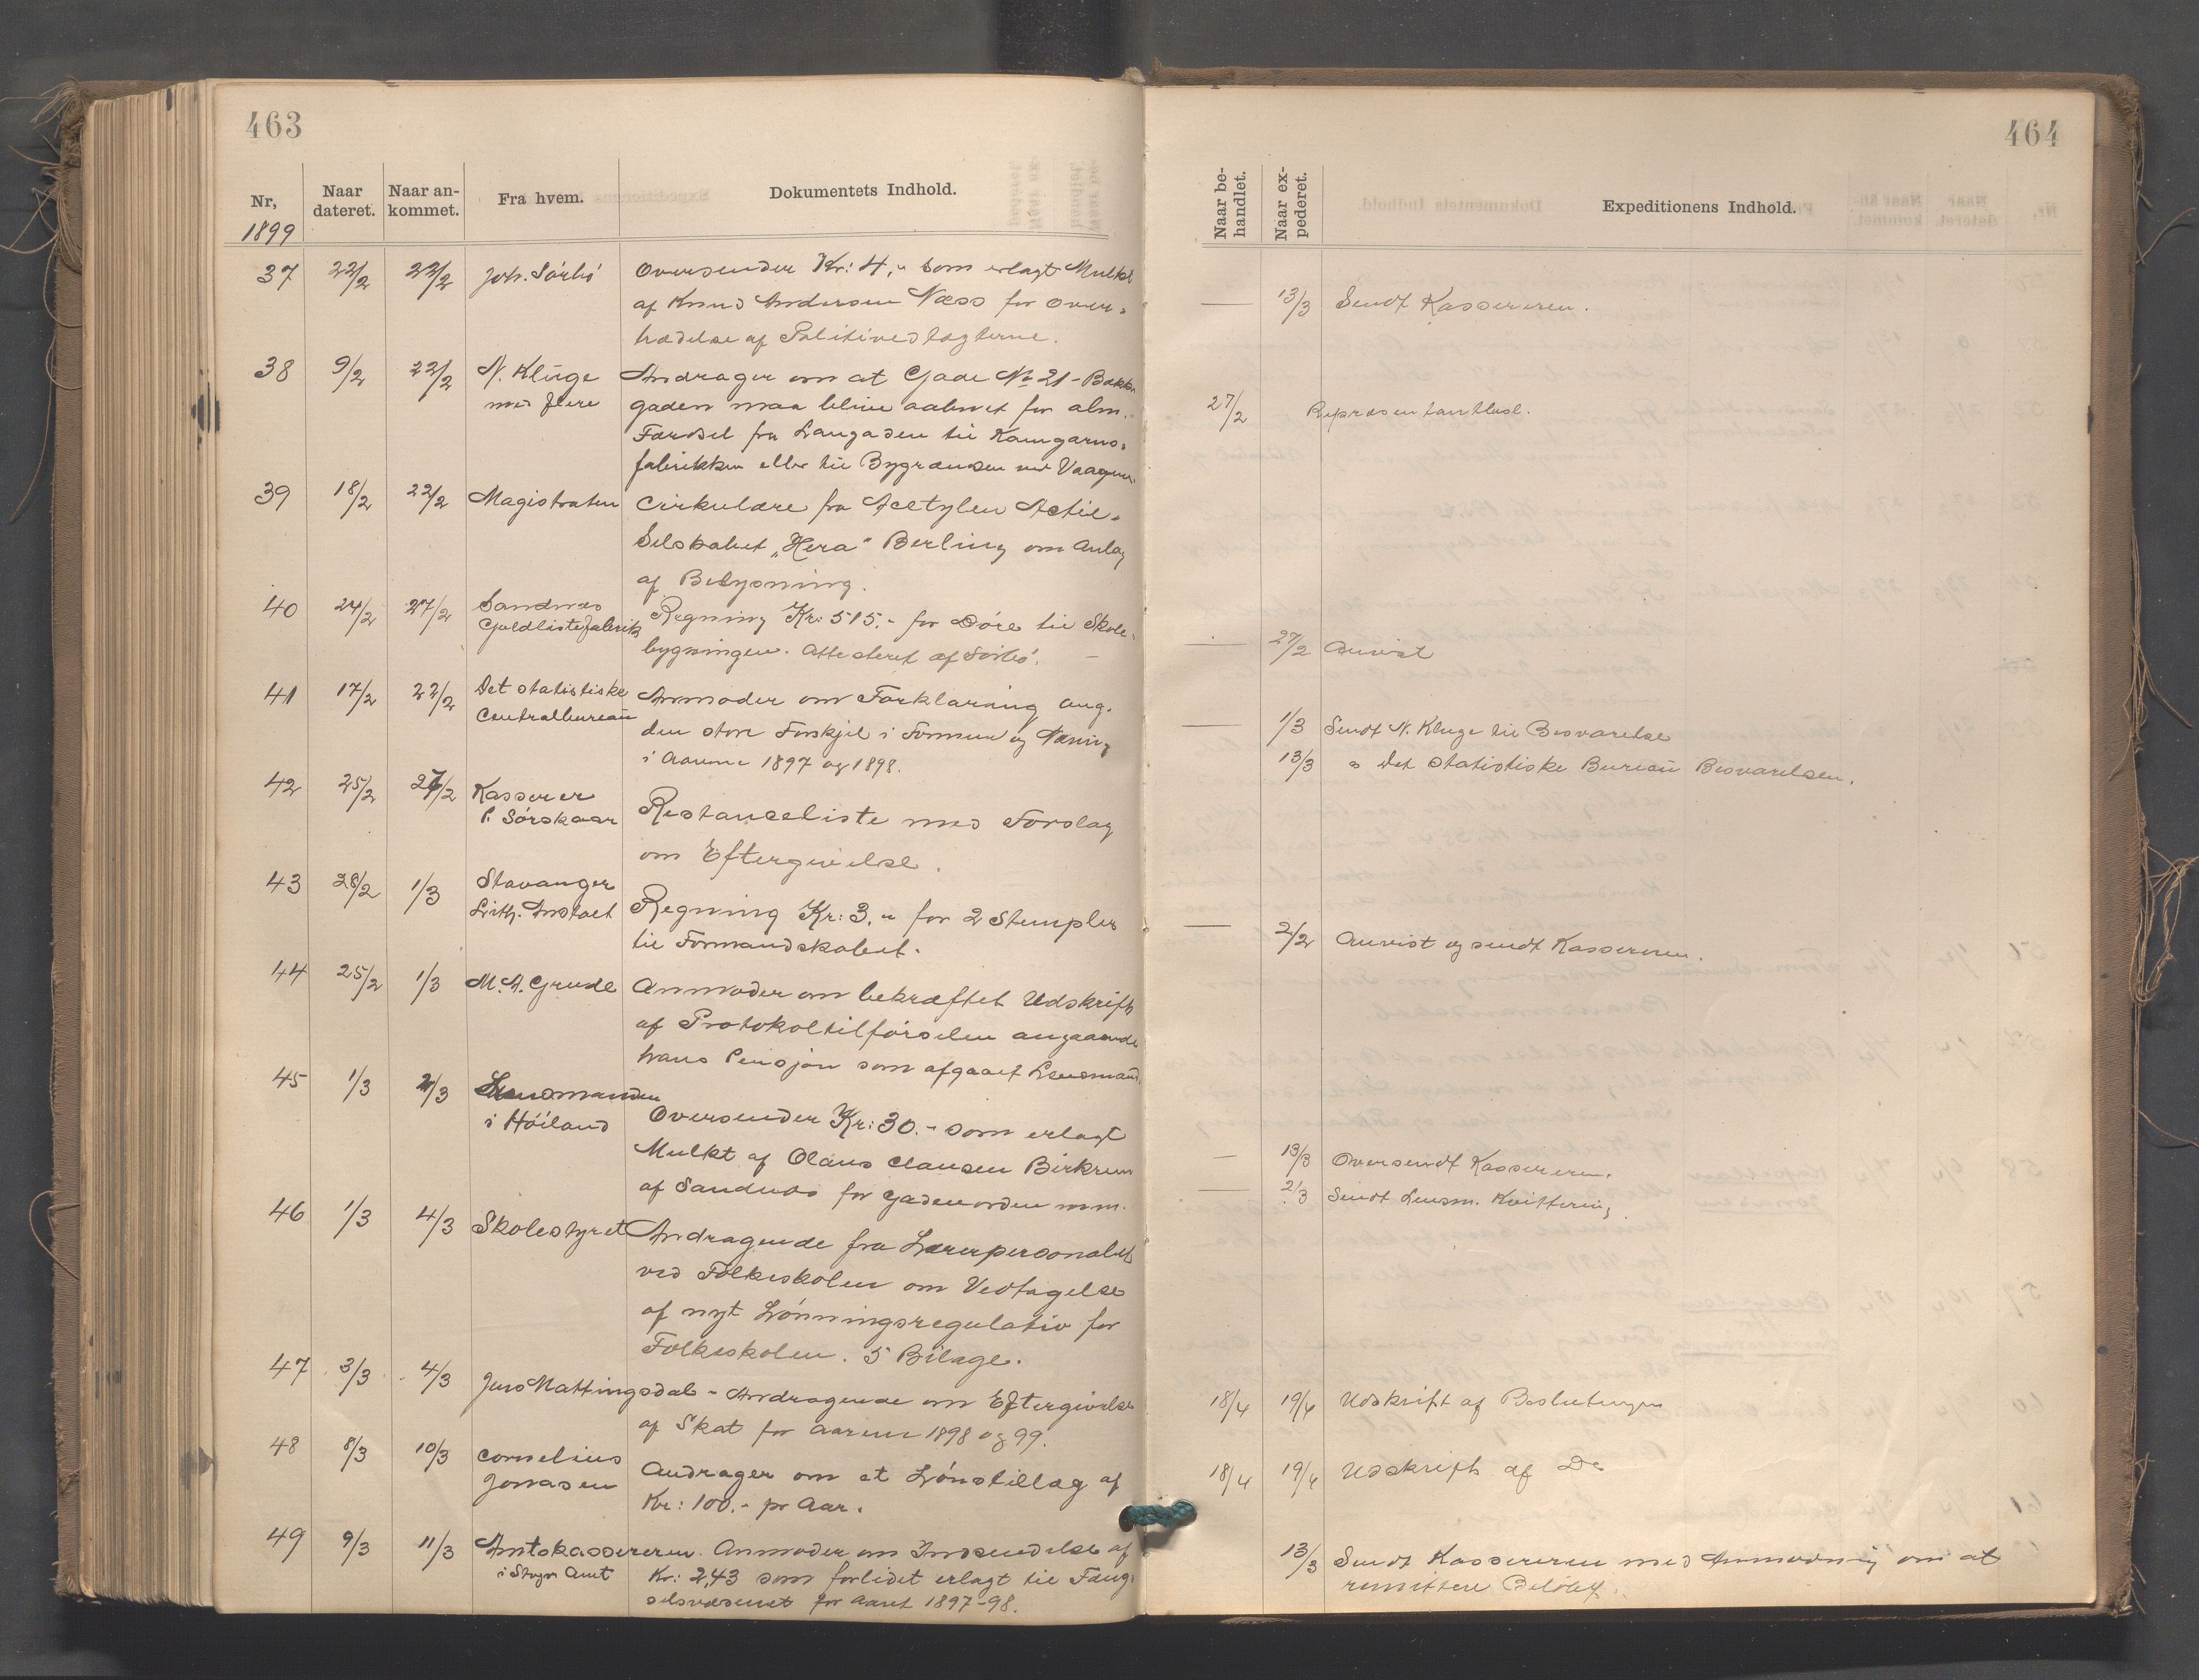 463
Nr,
Naar dateret.
Naar ankommet.
Fra hvem.
Dokumentets Indhold.
1899
37 22/2 22/2 Joh. Sörbö Oversender Kr: 4,- som erlagt Mulkt
af Knud Andersen Næss for Over-
trædelse af Politivedtægterne.
38 9/2 22/2 N. Kluge Andrager om at Gade No 21 - Bakke
med flere gaden maa blive aabnet for alm.
Færdsel fra Langgaden til Kamgarns-
fabrikken eller til Bygrændsen ved Vaagen
39 18/2 22/2 Magistraten Cirkulære fra Acetylen Actie-
Selskabet „Hera" Berling om Anlæg
af Belysning.
40 24/2 27/2 Sandnes
Guldlistefabrik Regning Kr: 515.- for Döre til Skole-
bygningen. Attesteret af Sörbö.
41 17/2 22/2 Det statistiske
Centralbureau Anmoder om Forklaring ang.
den store Forskjel i Formue og Næring
i Aarene 1897 og 1898.
42 25/2 27/2 Kasserer
P. Sörskaar Restanceliste med Forslag
om Eftergivelse.
43 28/2 1/3 Stavanger
Lith. Anstalt Regning Kr: 3,- for 2 Stempler
til Formandskabet.
44 25/2 1/3 M. A. Grude Anmoder om bekræftet Udskrift
af Protokoltilförselen angaaende
hans Pensjon som afgaaet Lensmand.
45 1/3 2/3 Lensmanden
i Höiland Oversender Kr: 30.- som erlagt
Mulkt af Olaus Clausen Birkrem
af Sandnes for Gadeuorden m.m.
46 1/3 4/3 Skolestyret Andragende fra Lærerpersonalet
ved Folkeskolen om Vedtagelse
af nyt Lönningsregulativ for
Folkeskolen. 5 Bilage.
47 3/3 4/3 Jens Mattingsdal - Andragende om Eftergivelse
af Skat for Aarene 1898 og 99.
48 8/3 10/3 Cornelius
Jonasen Andrager om et Lönstillæg af
Kr: 100.- pr Aar.
49 9/3 11/3 Amtskassereren Anmoder om Indsendelse af
i Stvgr Amt Kr: 2,43 som forlidet erlagt til Fæng-
selsvæsenet for Aaret 1897-98.
464
Naar behandlet.
Naar expederet.
Expeditionens Indhold.
— 13/3 Sendt Kassereren.
27/2 Repræsentantbesl.
— 27/2 Anvist
— 1/3 Sendt N. Kluge til Besvarelse
13/3 " Det statistiske Bureau Besvarelsen.
— 2/2 Anvist og sendt Kassereren.
— 13/3 Oversendt Kassereren.
— 2/3 Sendt Lensm. Kvittering
18/4 19/4 Udskrift af Beslutningen
18/4 19/4 Udskrift af Do
13/3 Sendt Kassereren med Anmodning om at
remittere Belöbet.